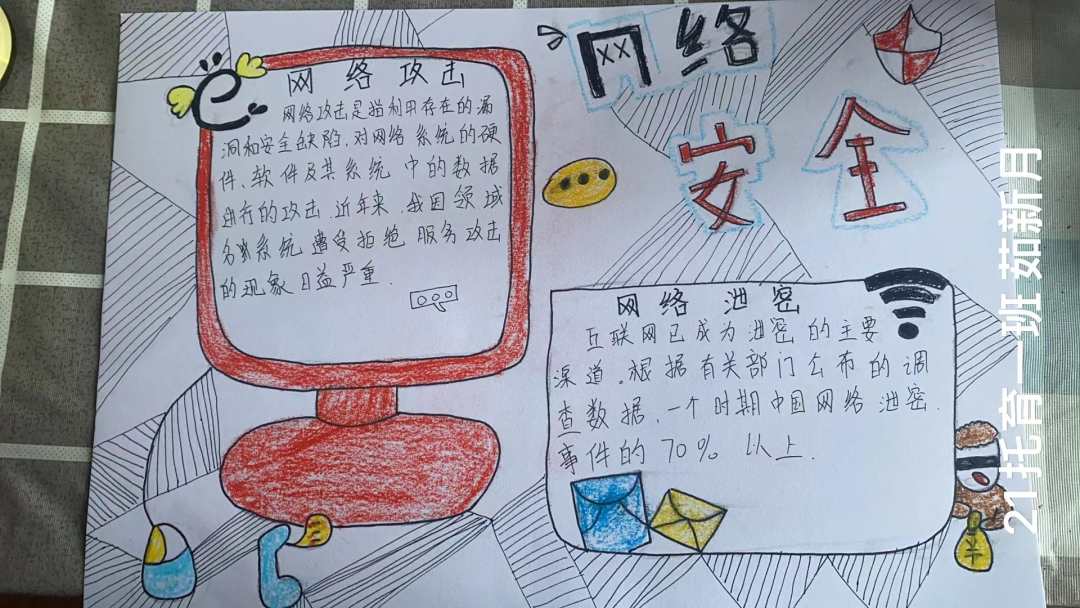 网络
安全
网络攻击
网络攻击是指利用存在的漏
洞和安全缺陷,对网络系统的硬
件、软件及其系统中的数据
进行的攻击.近年来,我国领域
系统遭受拒绝服务攻击
的现象日益严重.
网络泄密
互联网已成为泄密的主要
渠道。根据有关部门公布的调
查数据,一个时期中国网络泄密.
事件的70%以上.
21托育一班 茹新月